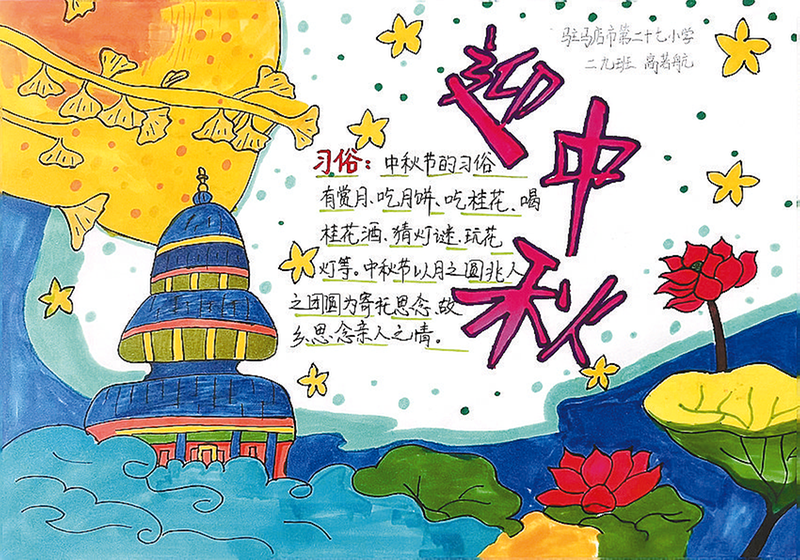 驻马店市第二十七小学
二九班 高若航
迎中秋
习俗：中秋节的习俗
有赏月、吃月饼、吃桂花、喝
桂花酒、猜灯谜、玩花
灯等。中秋节以月之圆兆人
之团圆为寄托思念故
乡，思念亲人之情。